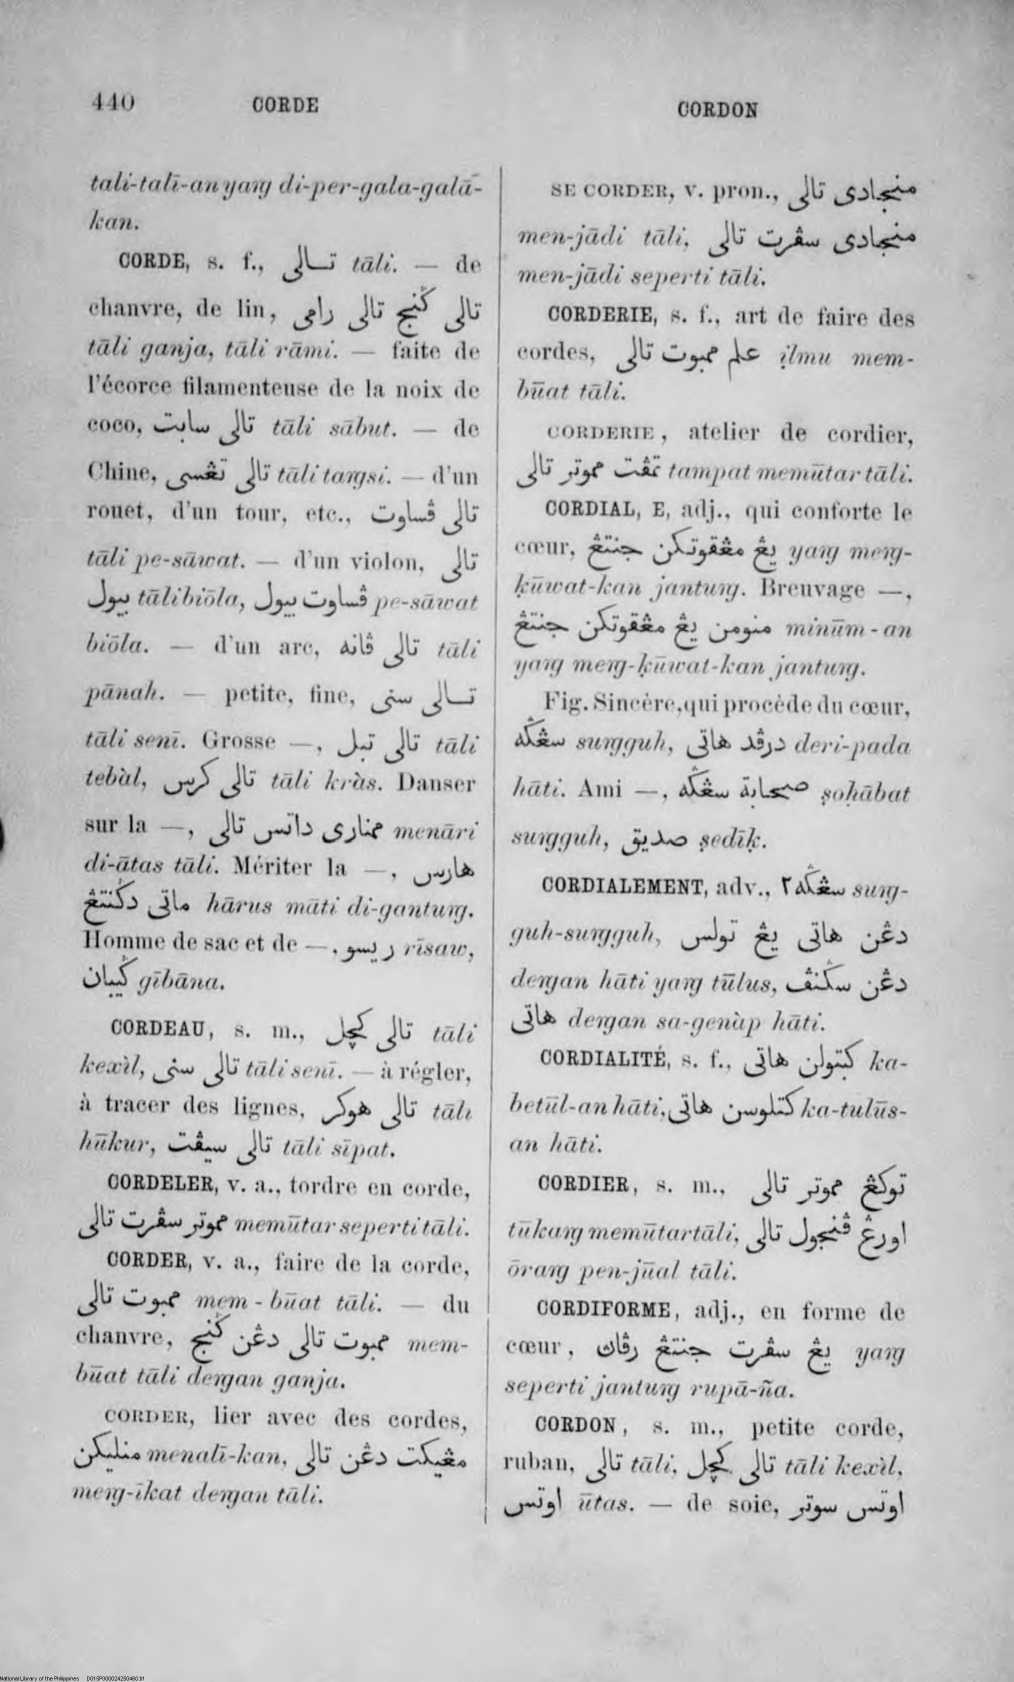 440 CORDE CORDON
tali-tali-an yaṅg di-per-gala-galā-
kan.
CORDE, s. f., تالى tāli. — de
chanvre, de lin, تالى ݢنج تالى رامى
tāli ganja, tāli rāmi. — faite de
l'écorce filamenteuse de la noix de
coco, تالى سابت tāli sābut. — de
Chine, تالى تڠسى tāli taṅgsi. — d'un
rouet, d'un tour, etc., تالى ڤساوت
tāli pe-sāwat. — d'un violon, تالى
بيول tāli biōla, ڤساوت بيول pe-sāwat
biōla. — d'un arc, تالى ڤانه tāli
pānah. — petite, fine, تالى سنى
tāli senī. Grosse —, تالى تبل tāli
tebàl, تالى كرس tāli kràs. Danser
sur la —, مناری داتس تالى menāri
di-ātas tāli. Mériter la —, هارس
ماتى دݢنتڠ hārus māti di-gantuṅg.
Homme de sac et de —, ريسو rīsaw,
ݢيبان gībāna.
CORDEAU, s. m., تالى کچل tāli
kexìl, تالى سنى tāli senī. — à régler,
à tracer des lignes, تالى هوكر tāli
hūkur, تالى سيڤت tāli sīpat.
CORDELER, v. a., tordre en corde,
مموتر سڤرت تالى memūtar seperti tāli.
CORDER, v. a., faire de la corde,
ممبوت تالى mem-būat tāli. — du
chanvre, ممبوت تالى دڠن ݢنج mem-
būat tāli deṅgan ganja.
CORDER, lier avec des cordes,
منليكن menalī-kan, مڠيكت دڠن تالى
meṅg-īkat deṅgan tāli.
SE CORDER, v. pron., منجادى تالى
men-jādi tāli, منجادى سڤرت تالى
men-jādi seperti tāli.
CORDERIE, s. f., art de faire des
cordes, علم ممبوت تالى ịlmu mem-
būat tāli.
CORDERIE, atelier de cordier,
تمڤت مموتر تالى tampat memūtar tāli.
CORDIAL, E, adj., qui conforte le
cœur, يڠ مڠقوتكن جنتڠ yaṅg meṅg-
ḳūwat-kan jantuṅg. Breuvage —,
منومن يڠ مڠقوتكن جنتڠ minūm-an
yaṅg meṅg-ḳūwat-kan jantuṅg.
Fig. Sincère, qui procède du cœur,
سڠݢه suṅgguh, درڤد هاتى deri-pada
hāti. Ami —, صحابة سڠݢه ṣoḥābat
suṅgguh, صديق ṣedīḳ.
CORDIALEMENT, adv., سڠݢه٢ suṅg-
guh-suṅgguh, دڠن هاتى يڠ تولس
deṅgan hāti yaṅg tūlus, دڠن سݢنڤ
هاتى deṅgan sa-genàp hāti.
CORDIALITÉ, s. f., كبتولن هاتى ka-
betūl-an hāti, كتلوسن هاتى ka-tulūs-
an hāti.
CORDIER, s. m., توكڠ مموتر تالى
tūkaṅg memūtar tāli, اورڠ ڤنجول تالى
ōraṅg pen-jūal tāli.
CORDIFORME, adj., en forme de
cœur, يڠ سڤرت جنتڠ رڤاڽ yaṅg
seperti jantuṅg rupā-ña.
CORDON, s. m., petite corde,
ruban, تالى tāli, تالى کچل tāli kexìl,
اوتس ūtas. — de soie, اوتس سوتر